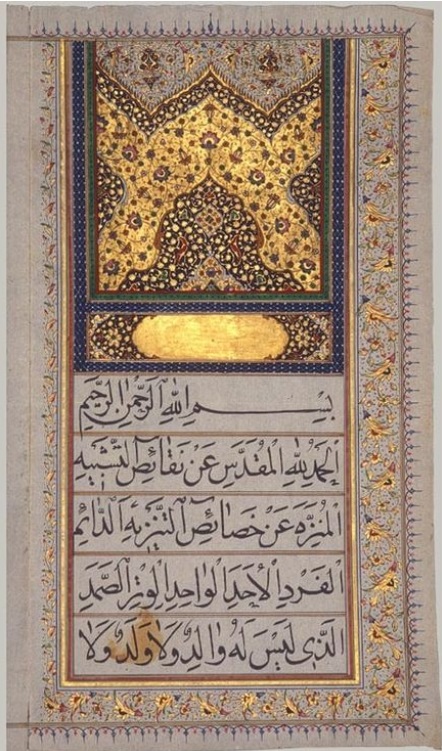 بِسْمِ اللهِ الرَّحْمٰنِ الرَّحِيْمِ
اَلْحَمْدُ لِلّٰهِ المُقَدَّسِ عَنْ نَقَائِصِ التَّشْبِيْهِ
المُنَزَّهِ عَنْ خَصَائِصِ التَّنْزِيْهِ الدَّائِمِ
الْفَرْدِ الْاَحَدِ الْوَاحِدِ الْوِتْرِ الصَّمَدِ
الَّذِيْ لَيْسَ لَهُ وَالِدٌ وَلَا وَلَدٌ وَلَا